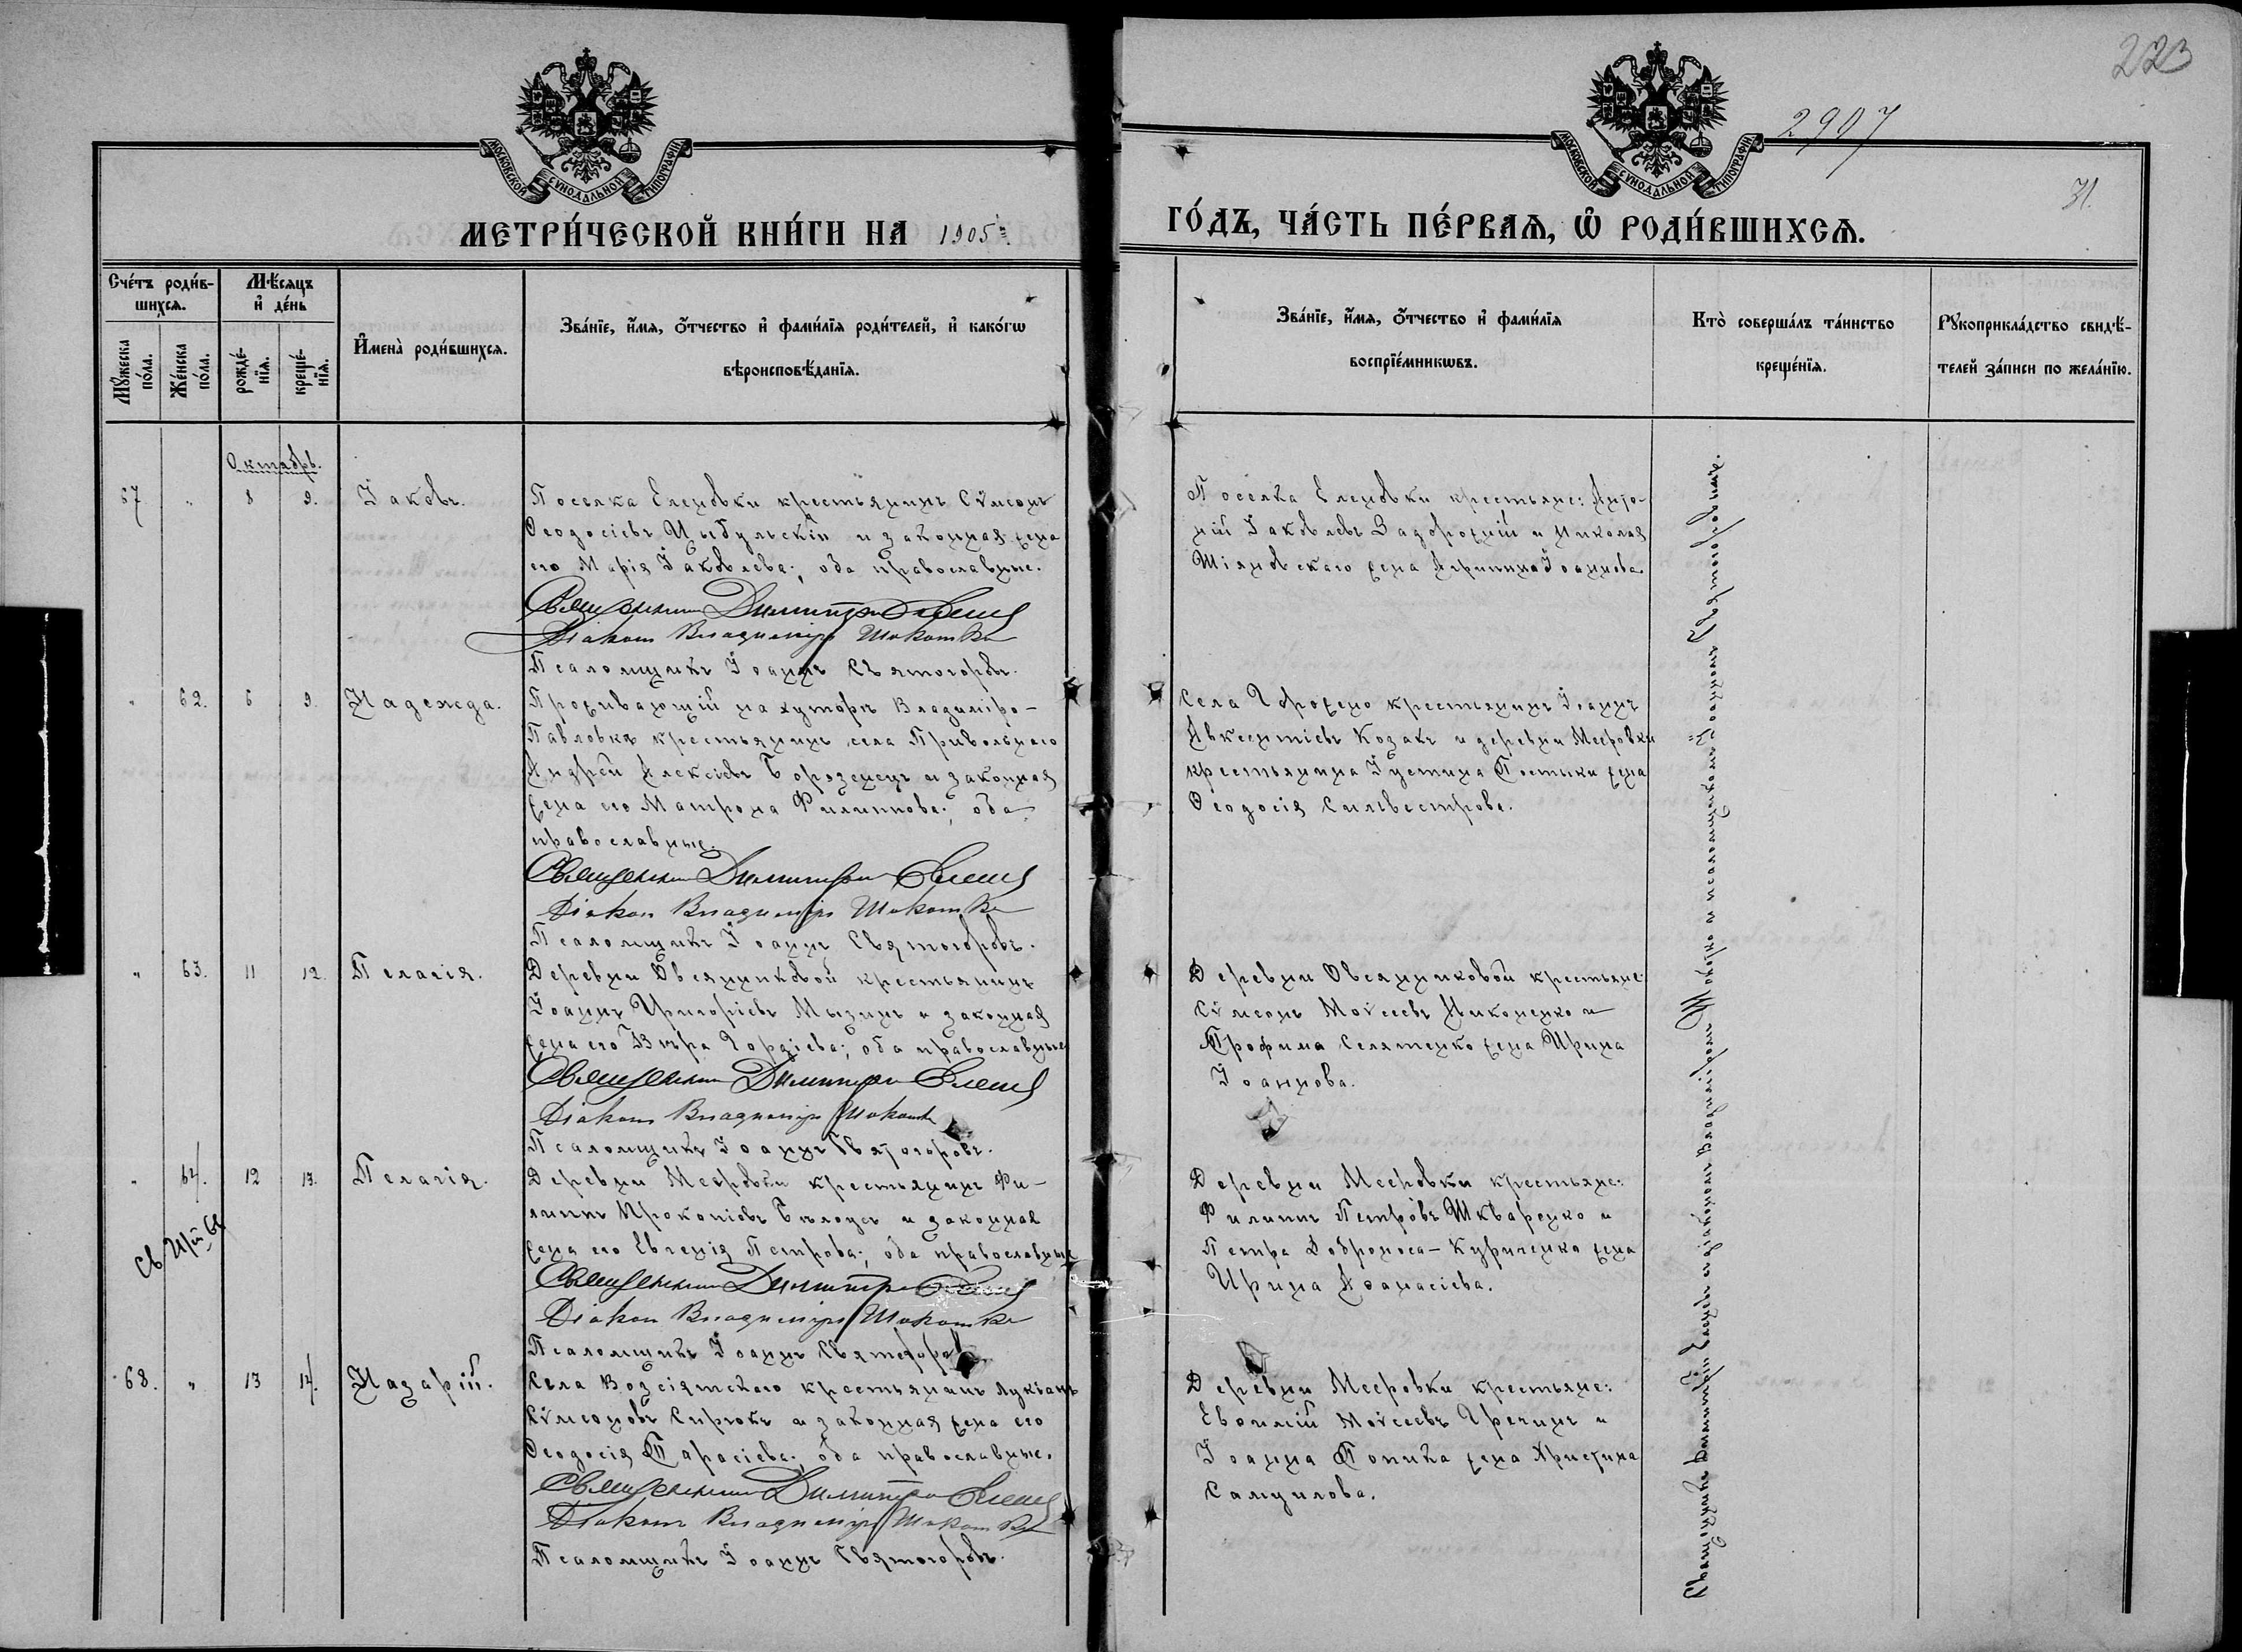 223
2907
31.
МОСКОВСКОЙ СѴНОДАЛЬНОЙ ТИПОГРАФІИ
МОСКОВСКОЙ СѴНОДАЛЬНОЙ ТИПОГРАФІИ
МЕТРИ́ЧЕСКОЙ КНИ́ГИ НА 1905 г.
ГО́ДЪ, ЧА́СТЬ ПЕ́РВАѦ, Ѡ҆ РОДИ́ВШИХСѦ.
Сче́тъ роди́в-
шихсѧ.
Мѣ́сѧцъ
и҆ де́нь
Мꙋ́жеска
по́ла.
Же́нска
по́ла.
рожде́-
нїѧ.
креще́-
нїѧ.
И҆мена̀ роди́вшихсѧ.
Зва́нїе, и҆́мѧ, ѻ҆́тчество и҆ фами́лїѧ роди́телей, и҆ како́гѡ
вѣроисповѣ́данїѧ.
Зва́нїе, и҆́мѧ, ѻ҆́тчество и҆ фами́лїѧ
воспрїе́мникѡвъ.
Кто̀ соверша́лъ та́инство
креще́нїѧ.
Рꙋкоприкла́дство свидѣ́-
телей за́писи по жела́нїю.
Октябрь.
67. " 8 9. Іаковъ.
Поселка Еленовки крестьянинъ Сѵмеонъ
Ѳеодосіевъ Цыбульскій и законная жена
его Марія Іаковлева; оба православные.
Священникъ Димитрій
Діаконъ Владиміръ Шокотько
Псаломщикъ Іоаннъ Святогоровъ.
Поселка Еленовки крестьяне: Анто-
ній Іаковлевъ Задорожній и Николая
Шіяновскаго жена Агриппина Іоаннова.
" 62. 6 9. Надежда.
Проживающій на хуторѣ Владиміро-
Павловкѣ крестьянинъ села Привольнаго
Андрей Алексіевъ Борозенецъ и законная
жена его Матрона Филиппова; оба
православные.
Священникъ Димитрій
Діаконъ Владиміръ Шокотько
Псаломщикъ Іоаннъ Святогоровъ.
Села Горожено крестьянинъ Іоаннъ
Авксентіевъ Козакъ и деревни Мееровки
крестьянина Іустина Постыки жена
Ѳеодосія Силвестрова.
" 63. 11 12. Пелагія.
Деревни Овсянниковой крестьянинъ
Іоаннъ Григоріевъ Мызинъ и законная
жена его Вѣра Гордіева; оба православные
Священникъ Димитрій
Діаконъ Владиміръ Шокотько
Псаломщикъ Іоаннъ Святогоровъ.
Деревни Овсянниковой крестьяне:
Сѵмеонъ Моѵсеевъ Никоненко и
Трофима Селятенко жена Ирина
Іоаннова.
" 64. 12 13. Пелагія.
Деревни Мееровки крестьянинъ Фи-
липпъ Прокопіевъ Бѣлоусъ и законная
жена его Евгенія Петрова; оба православные
Священникъ Димитрій
Діаконъ Владиміръ Шокотько
Псаломщикъ Іоаннъ Святогоровъ.
Деревни Мееровки крестьяне:
Филиппъ Петровъ Шкваренко и
Петра Доброноса-Куриченко жена
Ирина Аѳанасіева.
68. " 13 14. Назарій.
Села Возсіятскаго крестьянинъ Лукіанъ
Сѵмеоновъ Сирюкъ и законная жена его
Ѳеодосія Тарасіева; оба православные.
Священникъ Димитрій
Діаконъ Владиміръ Шокотько
Псаломщикъ Іоаннъ Святогоровъ.
Деревни Мееровки крестьяне:
Евѳимій Моѵсеевъ Гречинъ и
Іоанна Попика жена Христина
Самуилова.
Священникъ Димитрій съ діакономъ Владиміромъ Шокотько и псаломщикомъ Іоанномъ Святогоровымъ.